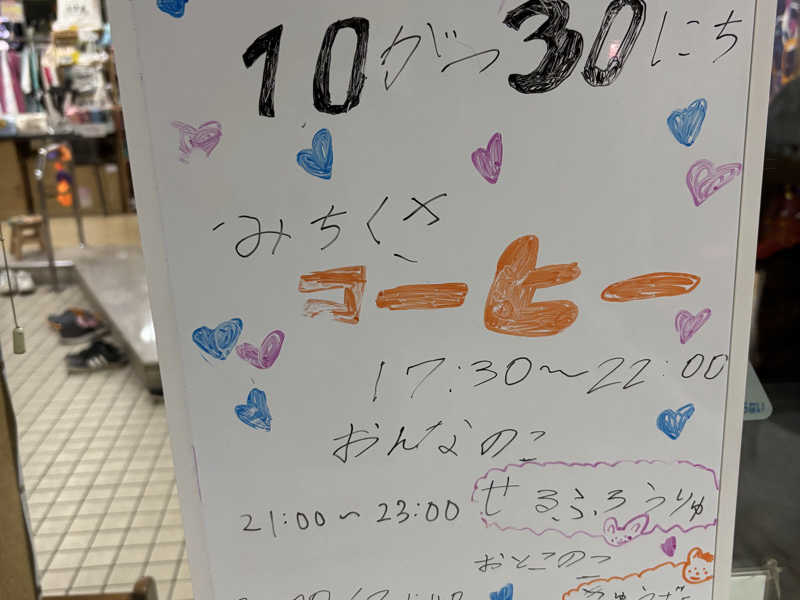 10がつ30にち
みちくさ
コーヒー
17:30〜22:00
おんなのこ
21:00〜23:00
せるふろうりゅ
おとこのこ